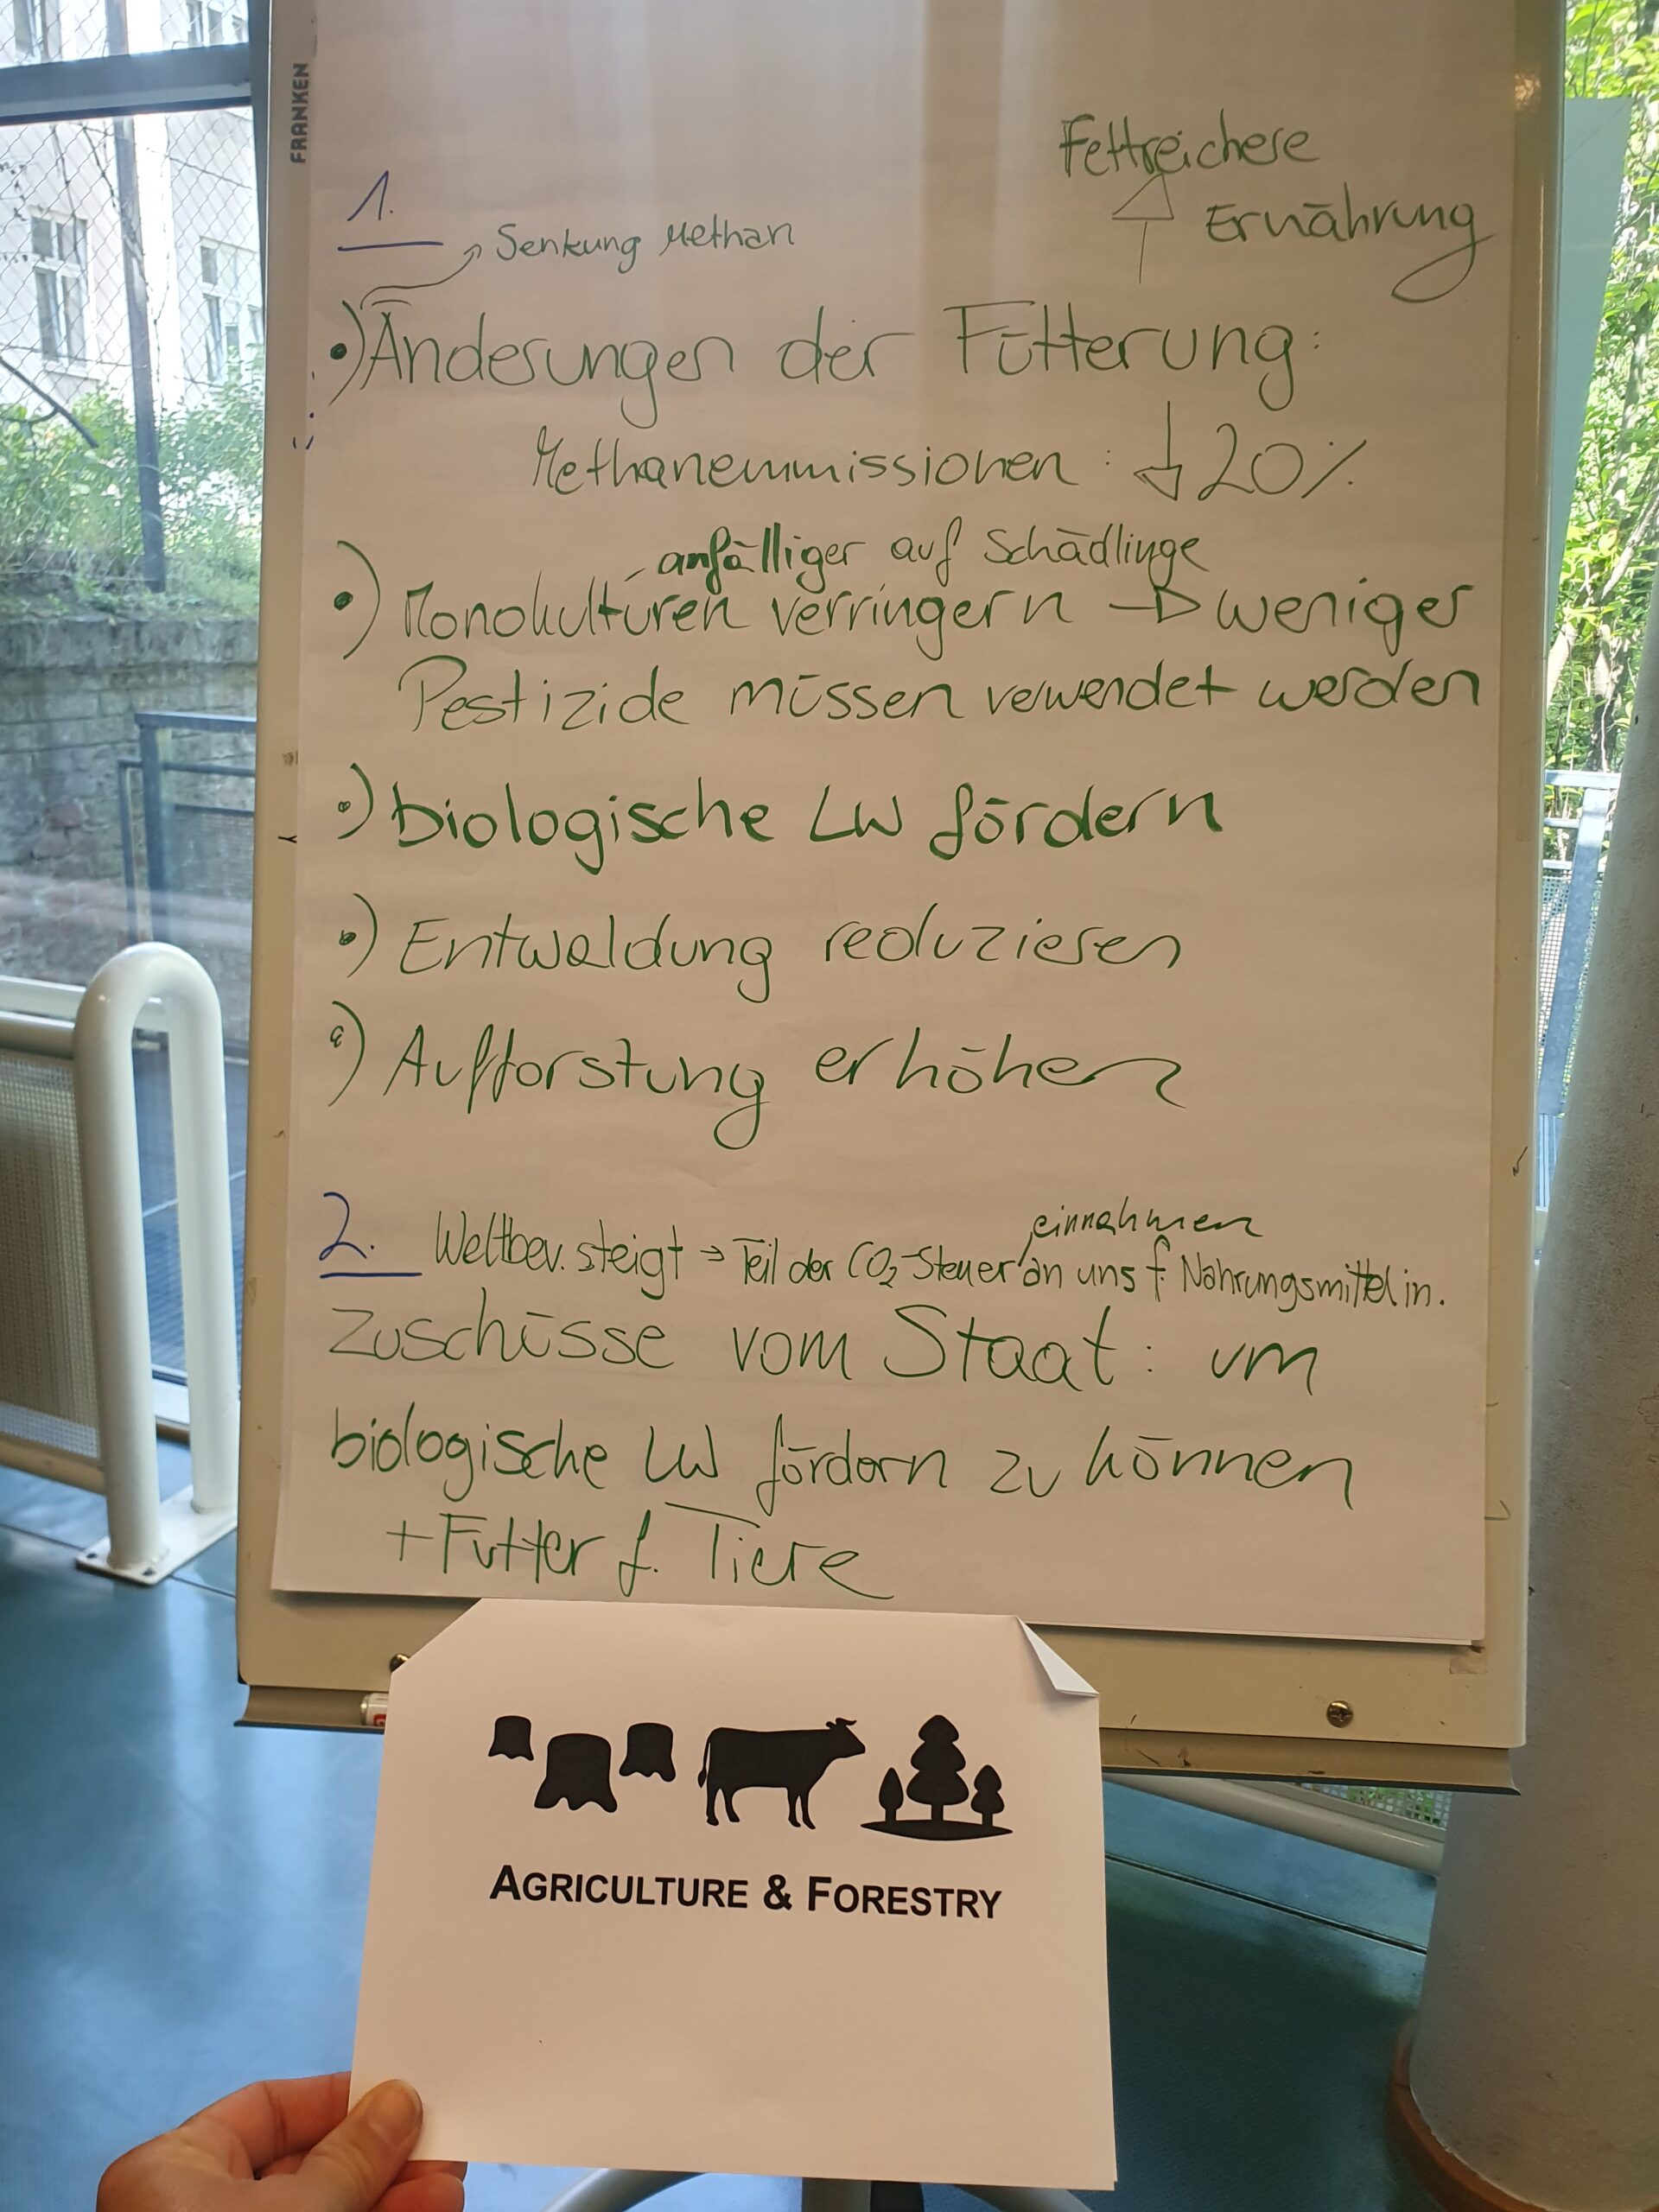 FRANKEN
Fettreichere
Ernährung
1.
Senkung Methan
•) Änderungen der Fütterung:
Methanemmissionen: ↓ 20%
anfälliger auf Schädlinge
•) Monokulturen verringern → weniger
Pestizide müssen verwendet werden
•) biologische LW fördern
•) Entwaldung reduzieren
•) Aufforstung erhöhen
einnahmen
2. Weltbev. steigt → Teil der CO₂-Steuer an uns f. Nahrungsmittelin.
Zuschüsse vom Staat: um
biologische LW fördern zu können
+ Futter f. Tiere
AGRICULTURE & FORESTRY